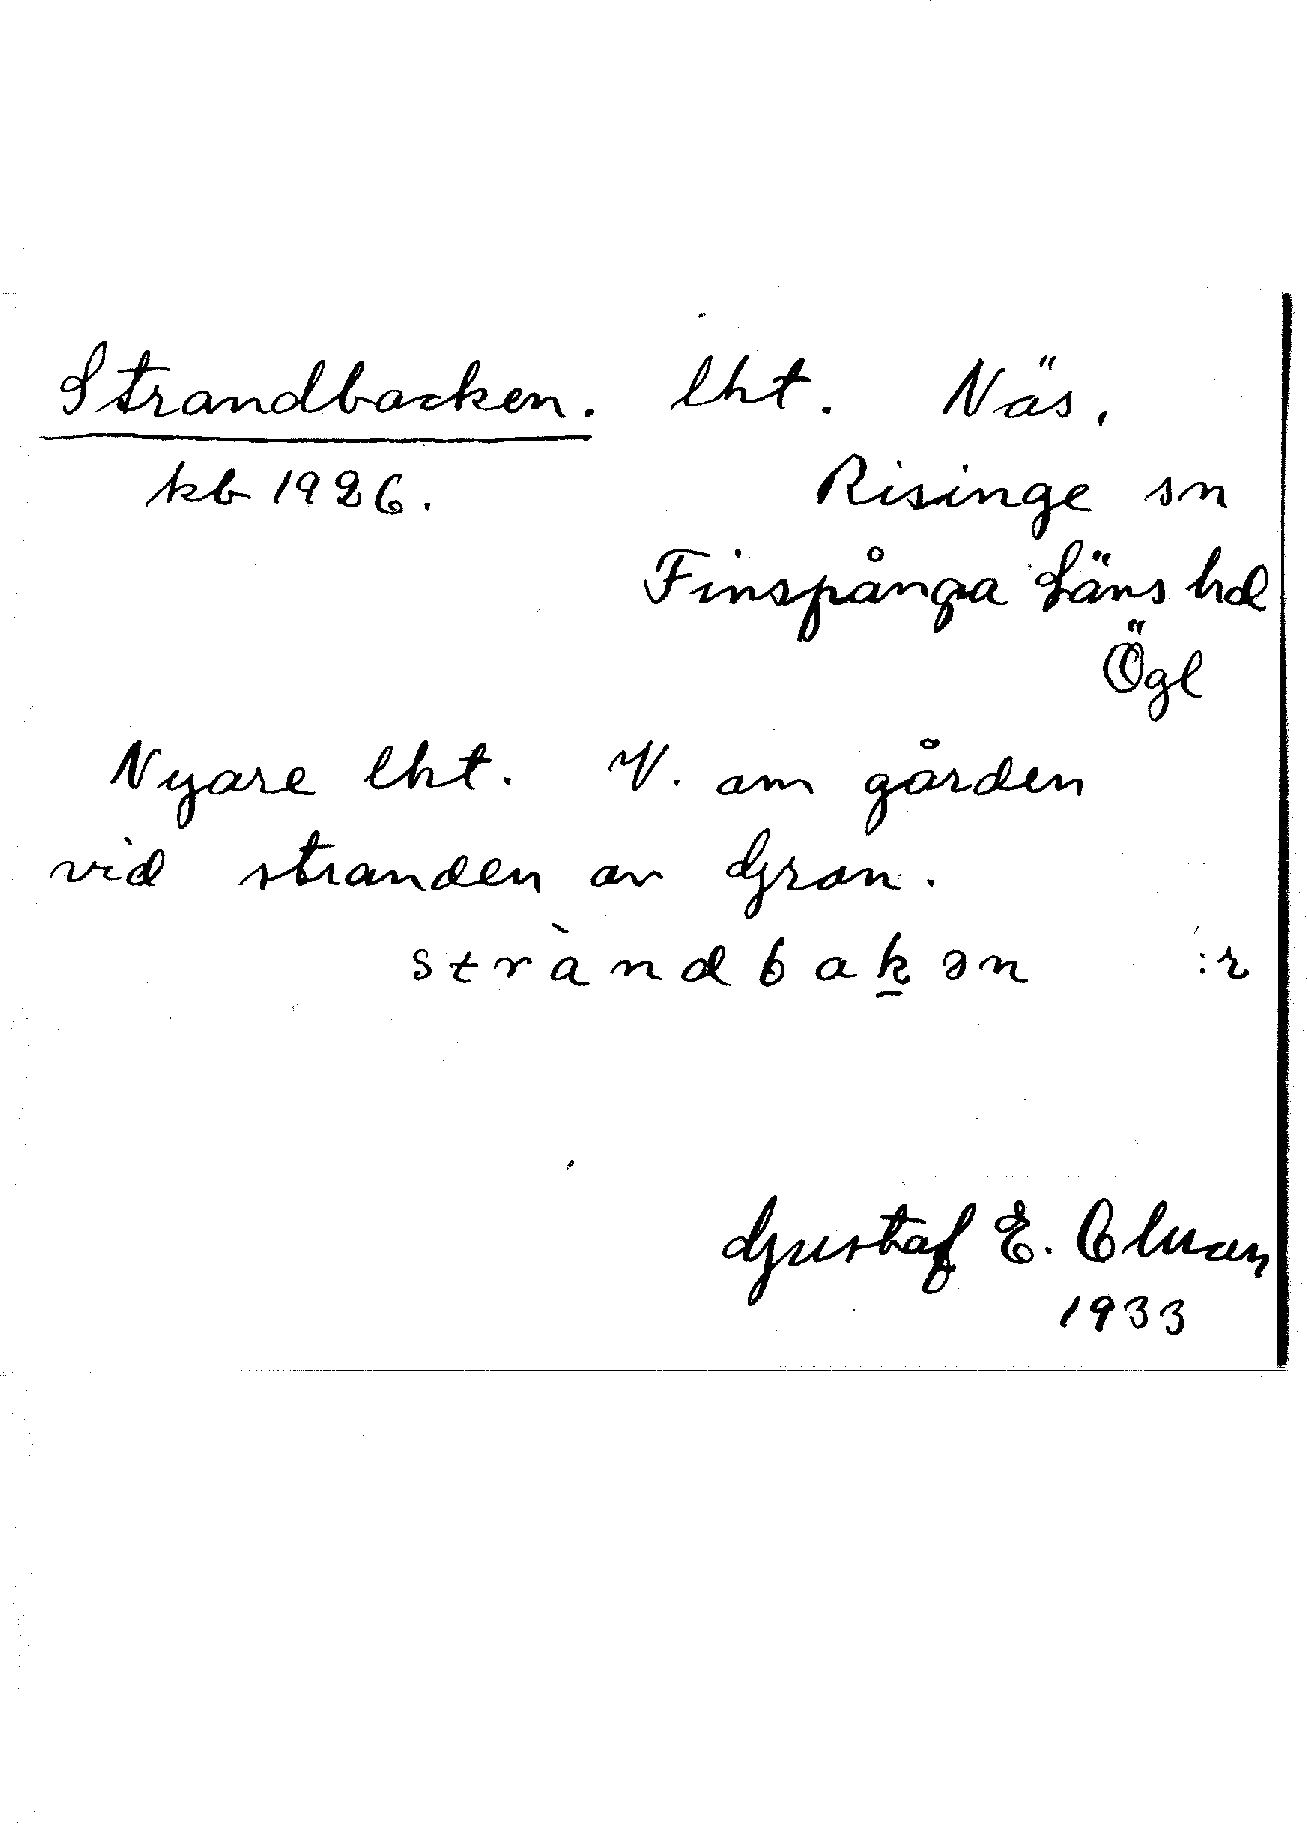 Strandbacken. lht. Näs.
kb 1926. Risinge sn
Finspånga Läns hd
Ögl
Nyare lht. V. om gården
vid stranden av Gron.
stràndbak̲ən :r
Gustaf E.
1933